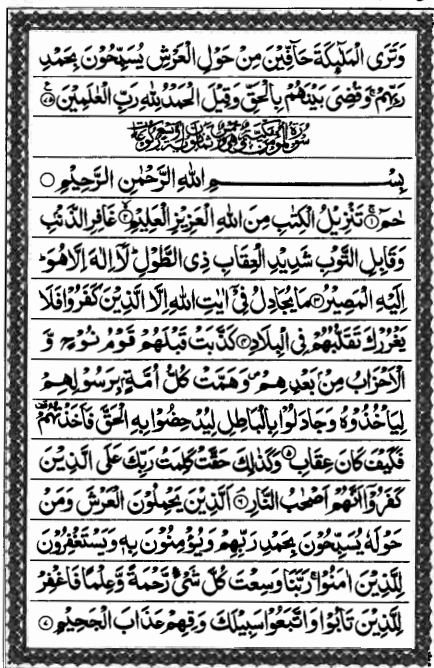 وَتَرَى الْمَلٰٓئِكَةَ حَآفِّيْنَ مِنْ حَوْلِ الْعَرْشِ يُسَبِّحُوْنَ بِحَمْدِ
رَبِّهِمْ ۚ وَقُضِىَ بَيْنَهُمْ بِالْحَقِّ وَقِيْلَ الْحَمْدُ لِلّٰهِ رَبِّ الْعٰلَمِيْنَ ﴿٧٥﴾
بِسْــــــــمِ اللّٰهِ الرَّحْمٰنِ الرَّحِيْمِ ○
حٰمٓ ﴿١﴾ تَنْزِيْلُ الْكِتٰبِ مِنَ اللّٰهِ الْعَزِيْزِ الْعَلِيْمِ ﴿٢﴾ غَافِرِ الذَّنْۢبِ
وَقَابِلِ التَّوْبِ شَدِيْدِ الْعِقَابِ ذِى الطَّوْلِ ؕ لَآ اِلٰهَ اِلَّا هُوَ ؕ
اِلَيْهِ الْمَصِيْرُ ﴿٣﴾ مَا يُجَادِلُ فِىْٓ اٰيٰتِ اللّٰهِ اِلَّا الَّذِيْنَ كَفَرُوْا فَلَا
يَغْرُرْكَ تَقَلُّبُهُمْ فِى الْبِلَادِ ﴿٤﴾ كَذَّبَتْ قَبْلَهُمْ قَوْمُ نُوْحٍ وَّ
الْاَحْزَابُ مِنْۢ بَعْدِهِمْ ۪ وَهَمَّتْ كُلُّ اُمَّةٍۭ بِرَسُوْلِهِمْ
لِيَاْخُذُوْهُ وَجَادَلُوْا بِالْبَاطِلِ لِيُدْحِضُوْا بِهِ الْحَقَّ فَاَخَذْتُهُمْ
فَكَيْفَ كَانَ عِقَابِ ﴿٥﴾ وَكَذٰلِكَ حَقَّتْ كَلِمَتُ رَبِّكَ عَلَى الَّذِيْنَ
كَفَرُوْٓا اَنَّهُمْ اَصْحٰبُ النَّارِ ﴿٦﴾ اَلَّذِيْنَ يَحْمِلُوْنَ الْعَرْشَ وَمَنْ
حَوْلَهٗ يُسَبِّحُوْنَ بِحَمْدِ رَبِّهِمْ وَيُؤْمِنُوْنَ بِهٖ وَيَسْتَغْفِرُوْنَ
لِلَّذِيْنَ اٰمَنُوْا ۚ رَبَّنَا وَسِعْتَ كُلَّ شَىْءٍ رَّحْمَةً وَّعِلْمًا فَاغْفِرْ
لِلَّذِيْنَ تَابُوْا وَاتَّبَعُوْا سَبِيْلَكَ وَقِهِمْ عَذَابَ الْجَحِيْمِ ﴿٧﴾